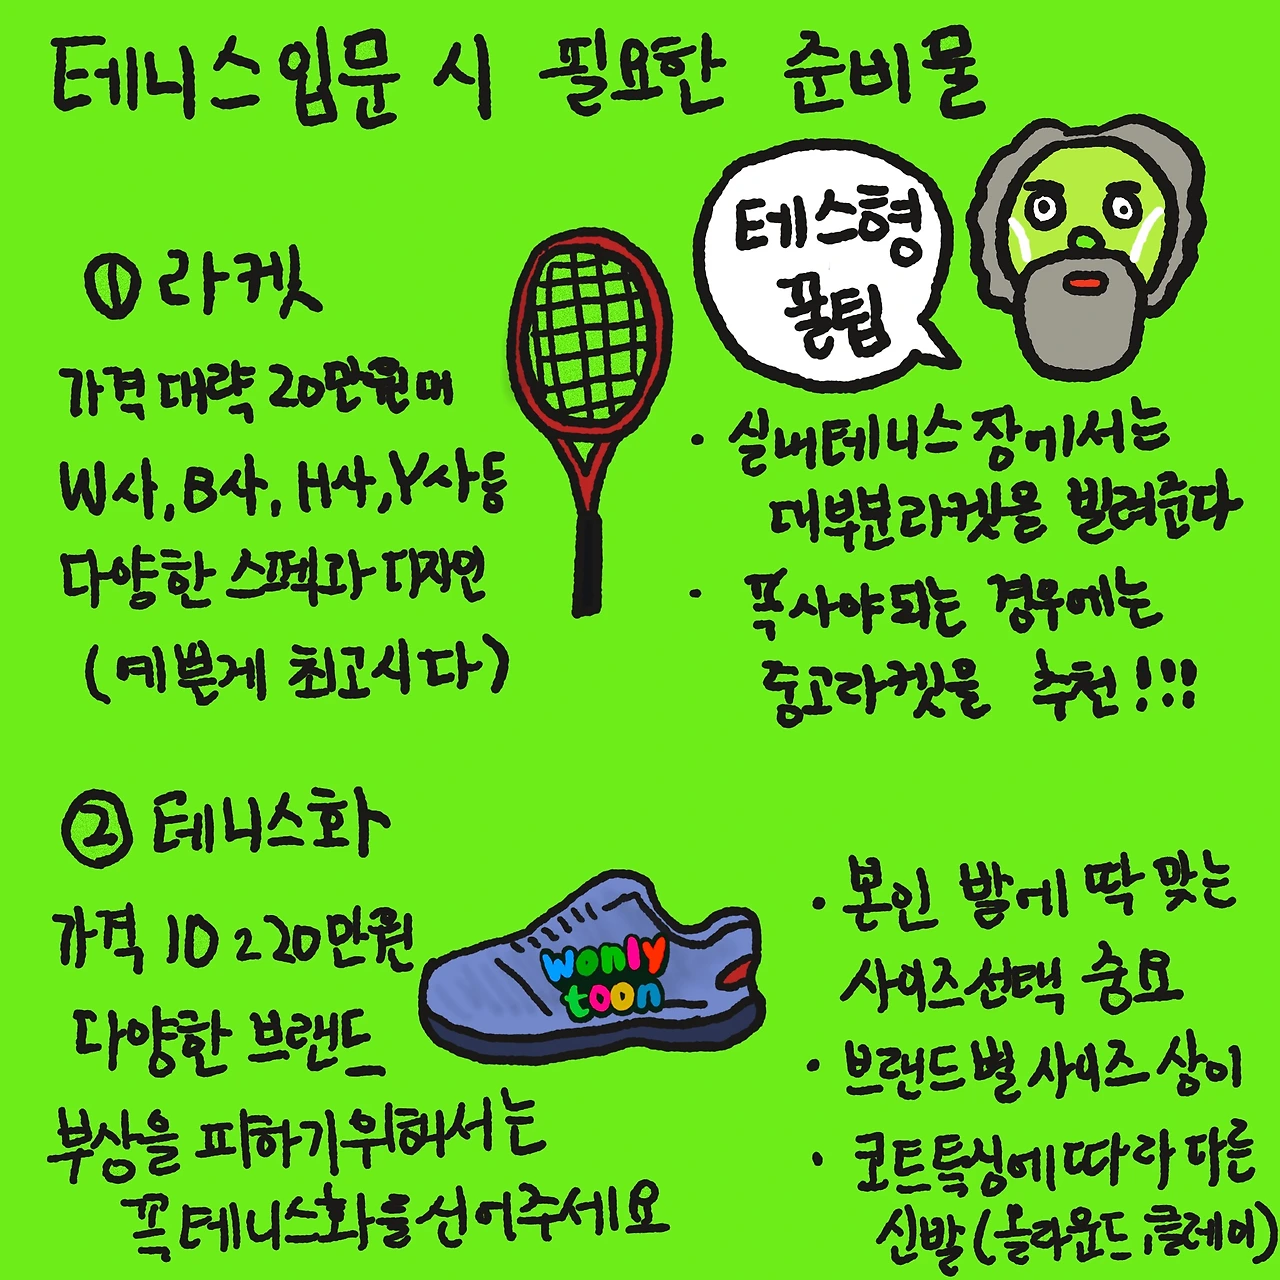 테니스 입문 시 필요한 준비물
테스형
꿀팁
① 라켓
가격 대략 20만원대
W사, B사, H사, Y사 등
다양한 스펙과 디자인
(예쁜게 최고시다)
· 실내테니스장에서는
대부분 라켓을 빌려준다
· 꼭 사야되는 경우에는
중고라켓을 추천!!!
② 테니스화
가격 10~20만원
다양한 브랜드
부상을 피하기위해서는
꼭 테니스화를 신어주세요
wonly
toon
· 본인 발에 딱 맞는
사이즈 선택 중요
· 브랜드별 사이즈 상이
· 코트특성에 따라 다른
신발(올라운드, 클레이)